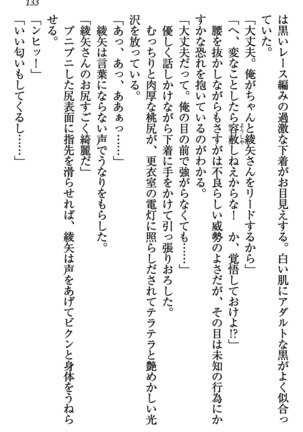 133
は黒いレース編みの過激な下着がお目見えする。白い肌にアダルトな黒がよく似合っ
ていた。
「大丈夫。俺がちゃんと綾矢さんをリードするから」
「へ、変なことしたら容赦しねえからな！　か、覚悟しておけよ!?」
腰を抜かしながらもさすがは不良らしい威勢のよさだが、その目は未知の行為にか
すかな恐れを抱いているようだ。
「大丈夫だって。俺の目の前で強がらなくても……」
優しく話しかけながら下着に手をかけて引っ張りおろした。
むっちりと肉厚な桃尻が、更衣室の電灯に照らしだされてテラテラと艶めかしい光
沢を放っている。
「あっ、あっ、ああぁっ……」
綾矢は言葉にならない声でうなりをもらした。
「綾矢さんのお尻すごく綺麗だ」
プニプニした尻表面に指先を滑らせれば、綾矢は声をあげてビクンと身体をうねら
せる。
「ンヒッ！」
「いい匂いもしてくるし……」